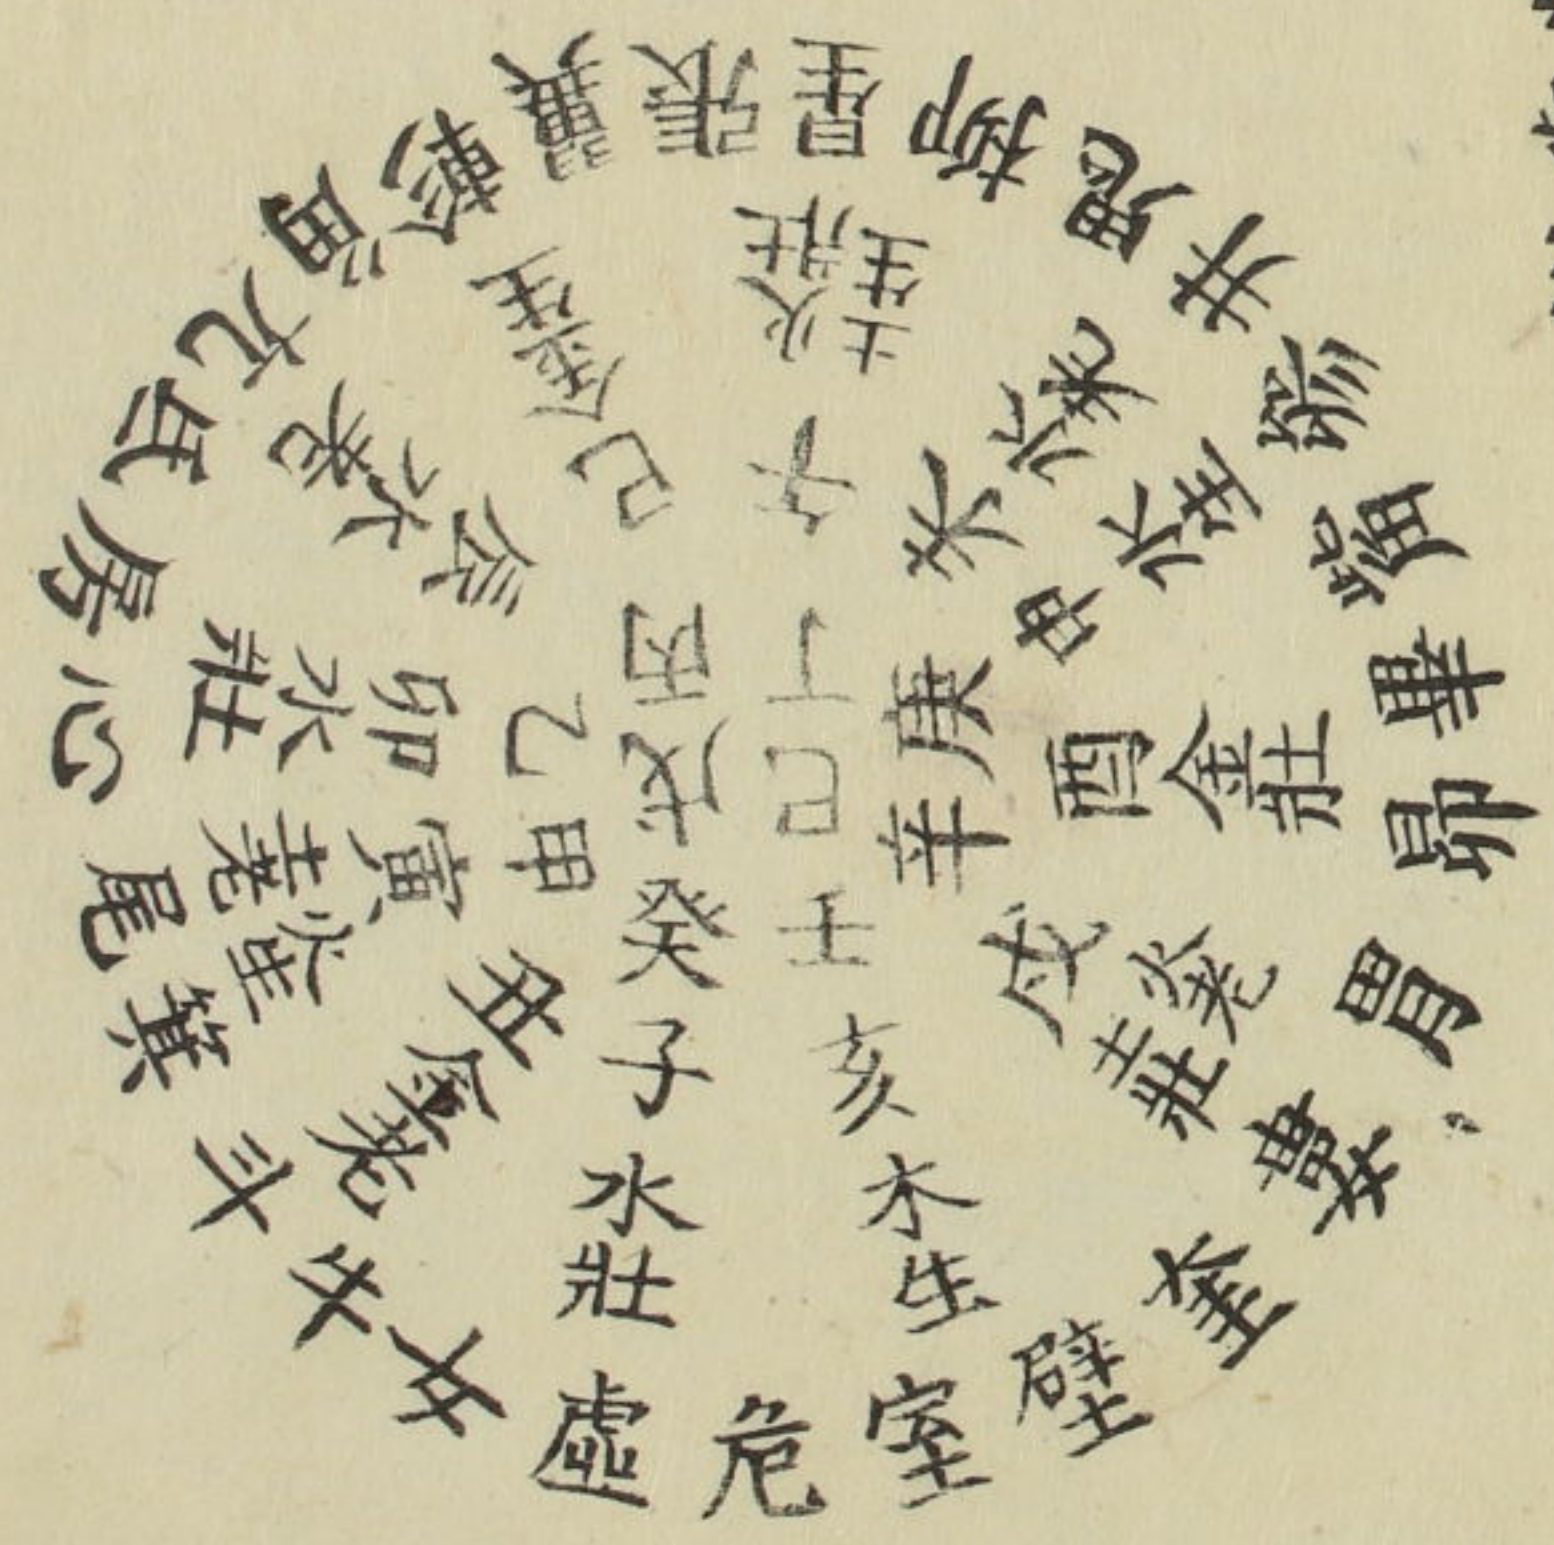 角
亢
氐
房
心
尾
箕
斗
牛
女
虛
危
室
壁
奎
婁
胃
昴
畢
觜
參
井
鬼
柳
星
張
翼
軫
子水壯
丑金老
寅火生土老
卯水壯
辰水老
巳金生
午火壯土生
未木老
申水生
酉金壯
戌火老土壯
亥木生
甲
乙
丙
丁
庚
辛
壬
癸
戊
己